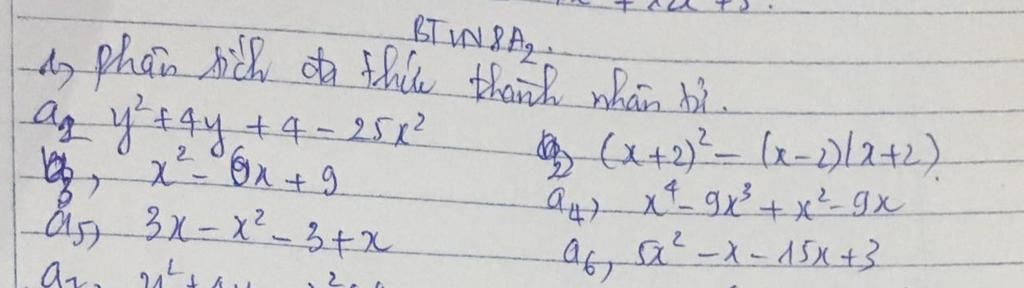 BTVN 8A₂.
1, phân tích đa thức thành nhân tử.
a₁ y² + 4y + 4 - 25x²
a₂) (x+2)² - (x-2)(x+2)
a₃, x² - 6x + 9
a₄, x⁴ - 9x³ + x² - 9x
a₅, 3x - x² - 3 + x
a₆, 5x² - x - 15x + 3